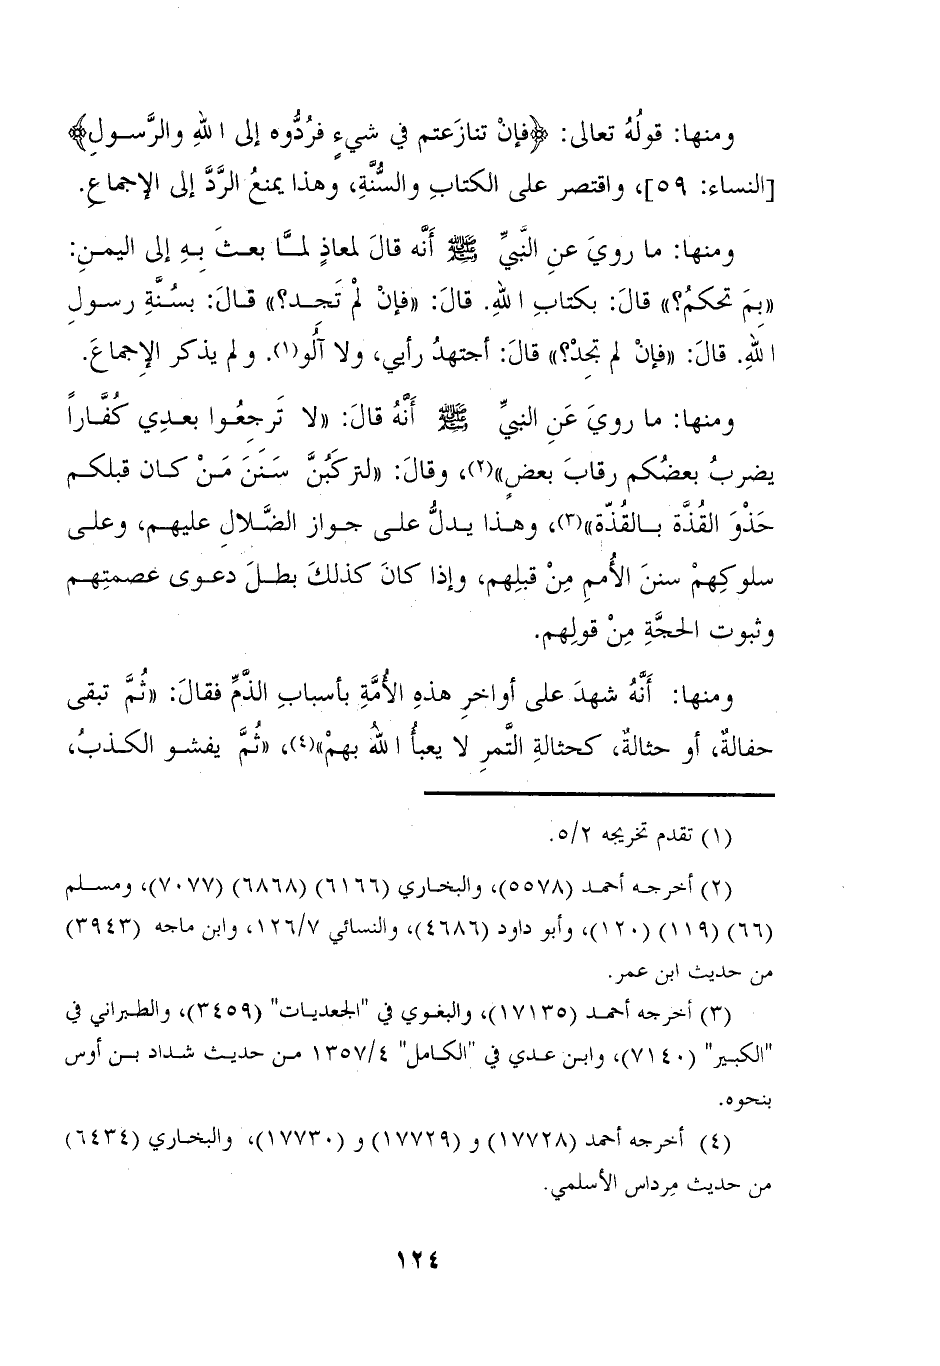 ومنها: قولُهُ تعالى: ﴿فإنْ تنازَعتم في شيءٍ فرُدُّوه إلى اللهِ والرَّسولِ﴾
[النساء: ٥٩]، واقتصر على الكتابِ والسُّنَّةِ، وهذا يمنعُ الرَّدَّ إلى الإجماعِ.
ومنها: ما رويَ عنِ النَّبيِّ ﷺ أنَّه قالَ لمعاذٍ لمَّا بعثَ بِهِ إلى اليمنِ:
«بِمَ تحكمُ؟» قالَ: بكتابِ اللهِ. قالَ: «فإنْ لمْ تَجد؟» قالَ: بسُنَّةِ رسولِ
اللهِ. قالَ: «فإنْ لم تجِدْ؟» قالَ: أجتهدُ رأيي، ولا آلُو(١). ولم يذكر الإجماعَ.
ومنها: ما رويَ عَنِ النبيِّ ﷺ أنَّهُ قالَ: «لا تَرجعُوا بعدِي كُفَّاراً
يضربُ بعضُكم رقابَ بعضٍ»(٢)، وقالَ: «لتركَبُنَّ سَنَنَ مَنْ كان قبلكم
حَذْوَ القُذَّة بالقُذّة»(٣)، وهذا يدلُّ على جواز الضَّلالِ عليهم، وعلى
سلوكِهمْ سننَ الأُممِ مِنْ قبلِهم، وإذا كانَ كذلكَ بطلَ دعوى عصمتِهم
وثبوت الحجَّةِ مِنْ قولِهم.
ومنها: أنَّهُ شهدَ على أواخرِ هذهِ الأُمَّةِ بأسبابِ الذَّمِّ فقالَ: «ثُمَّ تبقى
حفالةٌ، أو حثالةٌ، كحثالةِ التَّمرِ لا يعبأُ اللهُ بهمْ»(٤)، «ثُمَّ يفشو الكذبُ،
(١) تقدم تخريجه ٥/٢.
(٢) أخرجه أحمد (٥٥٧٨)، والبخاري (٦١٦٦) (٦٨٦٨) (٧٠٧٧)، ومسلم
(٦٦) (١١٩) (١٢٠)، وأبو داود (٤٦٨٦)، والنسائي ١٢٦/٧، وابن ماجه (٣٩٤٣)
من حديث ابن عمر.
(٣) أخرجه أحمد (١٧١٣٥)، والبغوي في "الجعديات" (٣٤٥٩)، والطبراني في
"الكبير" (٧١٤٠)، وابن عدي في "الكامل" ١٣٥٧/٤ من حديث شداد بن أوس
بنحوه.
(٤) أخرجه أحمد (١٧٧٢٨) و (١٧٧٢٩) و (١٧٧٣٠)، والبخاري (٦٤٣٤)
من حديث مِرداس الأسلمي.
١٢٤